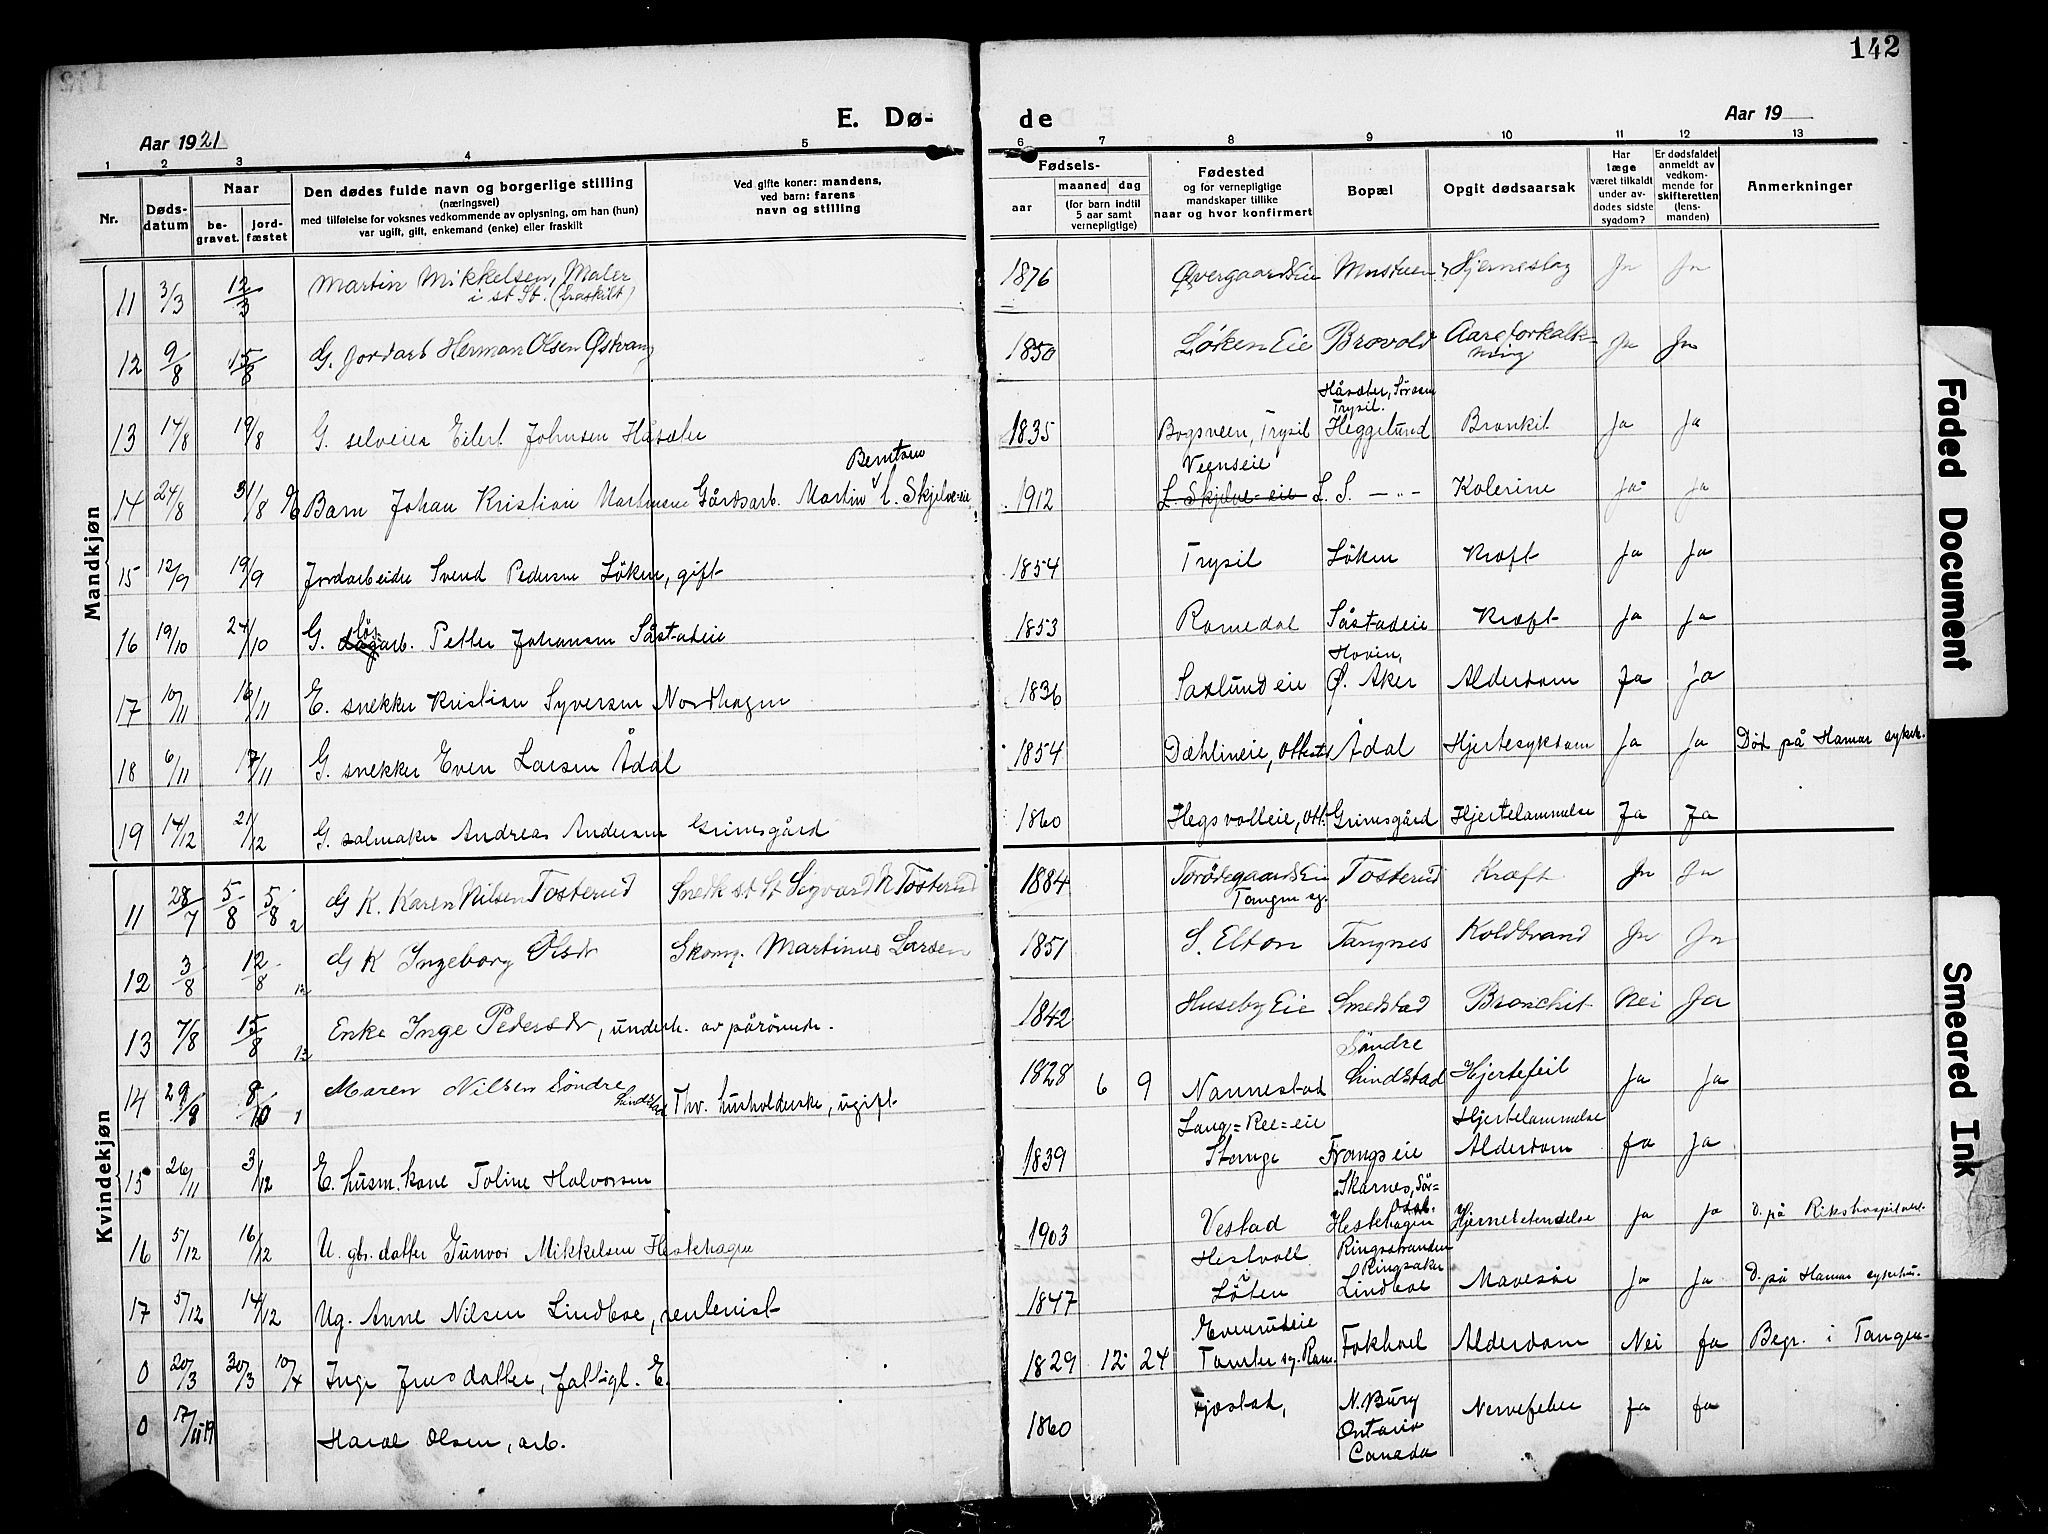 142
E. Dø- de
Aar 1921
Aar 19
1 2 3 4 5 6 7 8 9 10 11 12 13
Nr.
Døds-
datum
Naar
be-
gravet.
jord-
fæstet
Den dødes fulde navn og borgerlige stilling
(næringsvei)
med tilføielse for voksnes vedkommende av oplysning, om han (hun)
var ugift, gift, enkemand (enke) eller fraskilt
Ved gifte koner: mandens,
ved barn: farens
navn og stilling
Fødsels-
aar
maaned dag
(for barn indtil
5 aar samt
vernepligtige)
Fødested
og for vernepligtige
mandskaper tillike
naar og hvor konfirmert
Bopæl
Opgit dødsaarsak
Har
læge
været tilkaldt
under av-
dødes sidste
sygdom?
Er dødsfaldet
anmeldt av
vedkom-
mende for
skifteretten
(lens-
manden)
Anmerkninger
Mandkjøn
11 3/3 12/3 Martin Mikkelsen, Maler i st St. (fraskilt) 1876 Øvergaards Eie Hjerneslag Ja Ja
12 9/8 15/8 G. Jordarb Herman Olsen Østvang 1850 Løken Eie Brovold Aareforkalkning Ja Ja
13 14/8 19/8 G. selveier Eilert Johnsen Håsæter 1835 Bogsveen, Trysil Håsæter, Trysil. Heggelund Bronkit Ja Ja
14 24/8 31/8 Barn Johan Kristian Gårdsarb. Martin Berntsen L. Skjelve-eie 1912 Veenseie L. Skjelve-eie L. S. - " - Kolerine Ja Ja
15 12/9 19/9 Jordarbeider Svend Pedersen Löken, gift 1854 Trysil Löken Kræft Ja Ja
16 19/10 24/10 G. lösarb. Petter Johansen Såstadeie 1853 Romedal Såstadeie Kræft Ja Ja
17 10/11 16/11 E. snekker Kristian Syversen Nordhagen 1836 Saxlundeie Hovin, Ø. Aker Alderdom Ja Ja
18 6/11 17/11 G. snekker Even Larsen Ådal 1854 Dæhlineie, Ottestad Ådal Hjertesykdom Ja Ja Död på Hamar sykeh.
19 14/12 21/12 G. salmaker Andreas Andersen Grimsgård 1860 Hegsvolleie, Ott. Grimsgård Hjertelammelse Ja Ja
Kvindekjøn
11 28/7 5/8 5/8 2 G K. Karen Nilsen Tosterud Smed st St Sigvard N Tosterud 1884 Torødegaards Eie Tangen sg. Tosterud Kræft Ja Ja
12 3/8 12/8 12 G K Ingeborg Olsdr Skom. Martinus Larsen 1851 S. Elton Tangnes Koldbrand Ja Ja
13 7/8 15/8 12 Enke Inge Pedersdr, underh. av pårörende. 1842 Huseby Eie Smedstad Bronchit Nei Ja
14 29/9 8/10 1 Maren Nilsen Söndre Lindstad Thv. husholderske, ugift 1828 6 9 Nannestad Söndre Lindstad Hjertefeil Ja Ja
15 26/11 3/12 E. husm. kone Toline Halvorsen 1839 Lang-Ree-eie Stange Frangseie Hjertelammelse Alderdom Ja Ja
16 5/12 16/12 U. gbr. datter Gunvor Mikkelsen Hestehagen 1903 Vestad Skarnes, Sör-Odal. Hestehagen Hjernebetendelse Ja Ja D. på Rikshospitalet.
17 5/12 14/12 Ug. Anne Nilsen Lindboe, rentenist 1847 Hestvoll i Löten Ringsstranden Ringsaker Lindboe Mavesår Ja Ja D. på Hamar sykehus.
0 20/3 30/3 10/4 Inge Jensdatter, fattigl. E. 1829 12 24 Evenrudeie Tomter sg. Rom. Fokhoel Alderdom Nei Ja Begr. i Tangen
0 17/11 19 Harald Olsen, arb. 1860 Fjæstad, N. Bury Ontario Canada Nervefeber Ja Ja
Faded Document
Smeared Ink